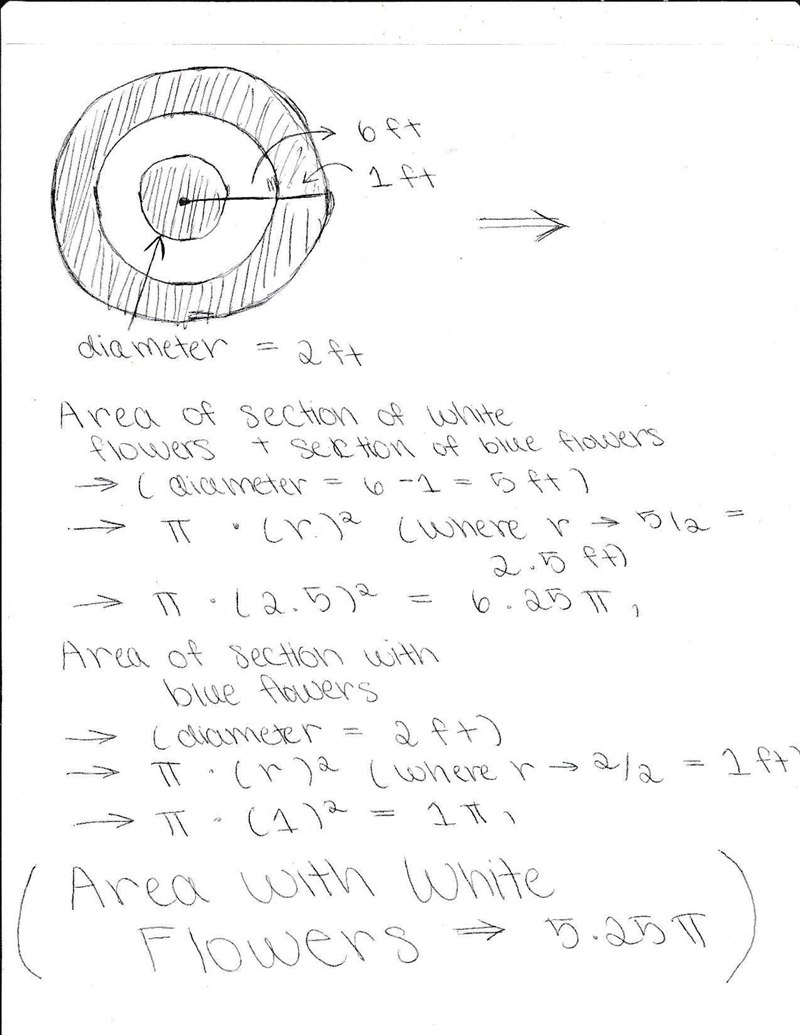 6 ft
1 ft
⇒
diameter = 2 ft
Area of section of white
flowers + section of blue flowers
→ ( diameter = 6 - 1 = 5 ft )
→ π · (r.)² (where r → 5/2 =
2.5 ft)
→ π · (2.5)² = 6.25 π,
Area of section with
blue flowers
→ (diameter = 2 ft)
→ π · (r)² (where r → 2/2 = 1 ft)
→ π · (1)² = 1 π,
( Area with White
Flowers ⇒ 5.25 π )